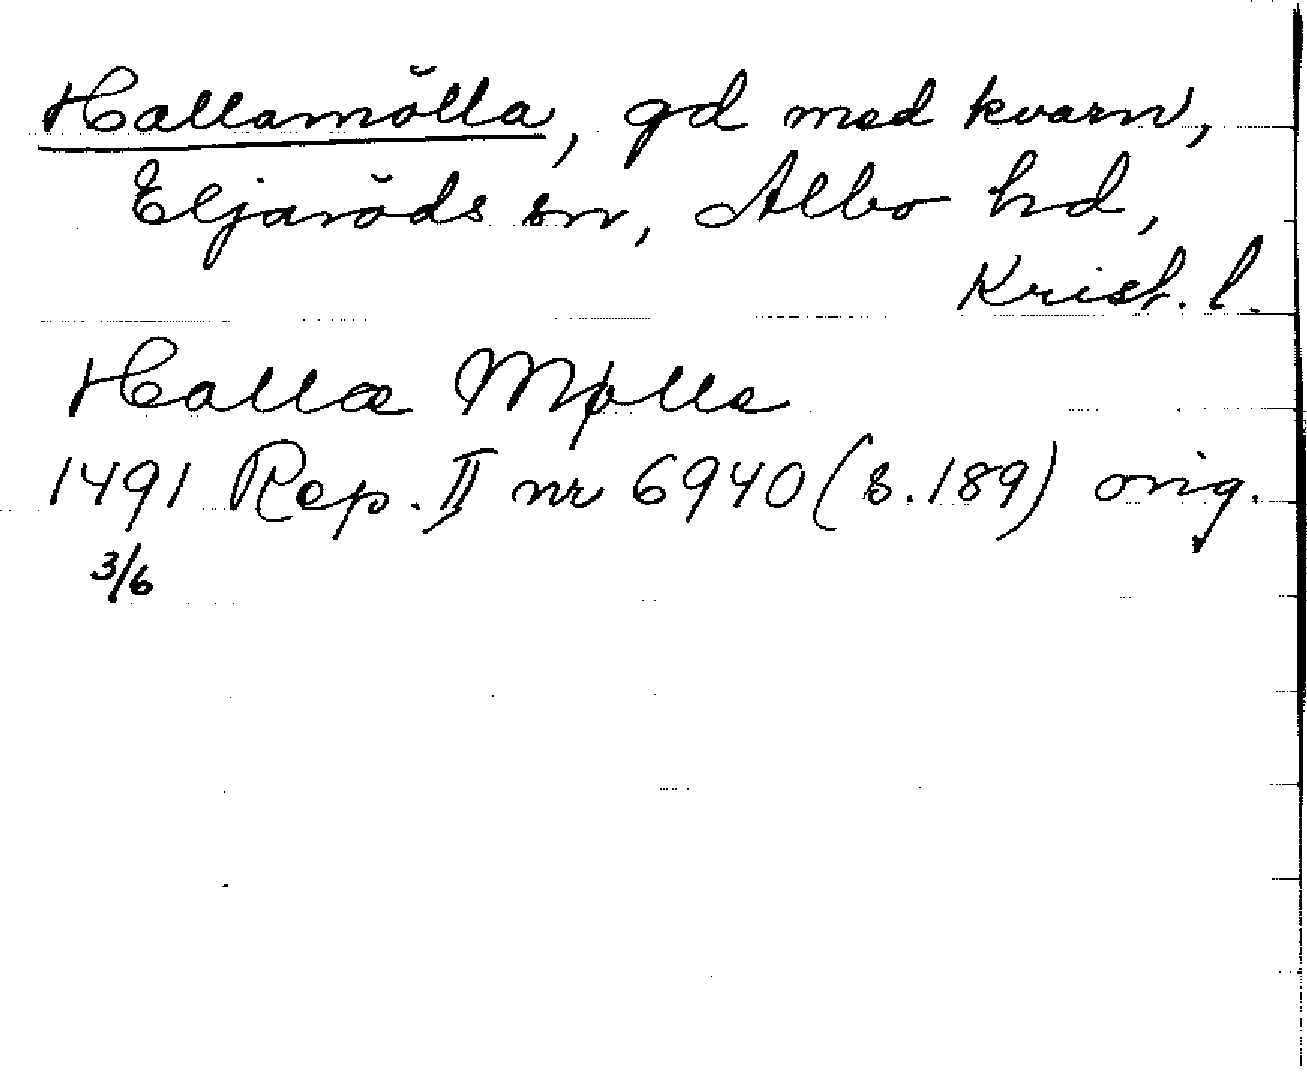 Hallamölla, gd med kvarn,
Eljaröds sn, Albo hd,
Krist. l.
Hallæ Mølle
1491 Rep. II nr 6940 (s. 189) orig.
3/6